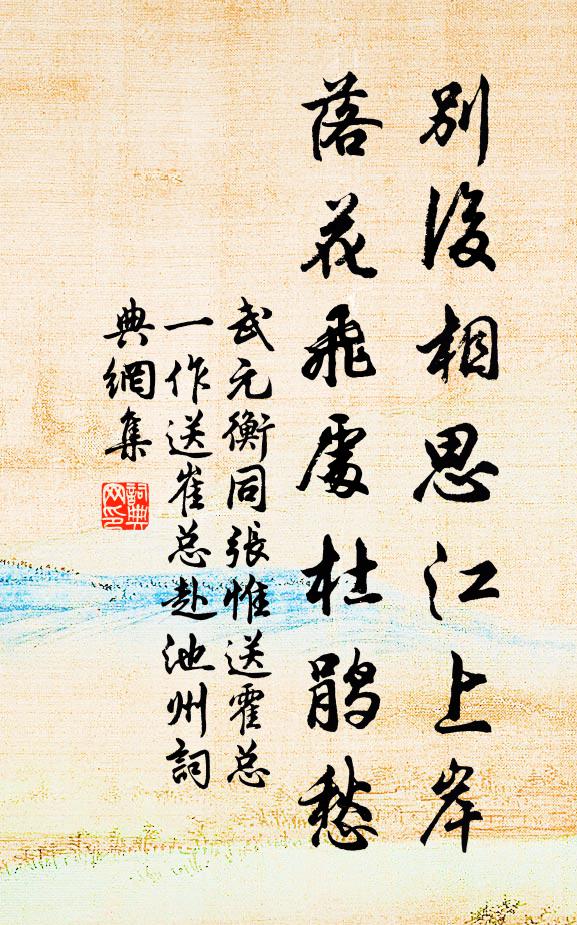 別後相思江上岸
落花飛處杜鵑愁
武元衡同張惟送霍总
一作送崔总赴池州詞
典網集
詞典
网印